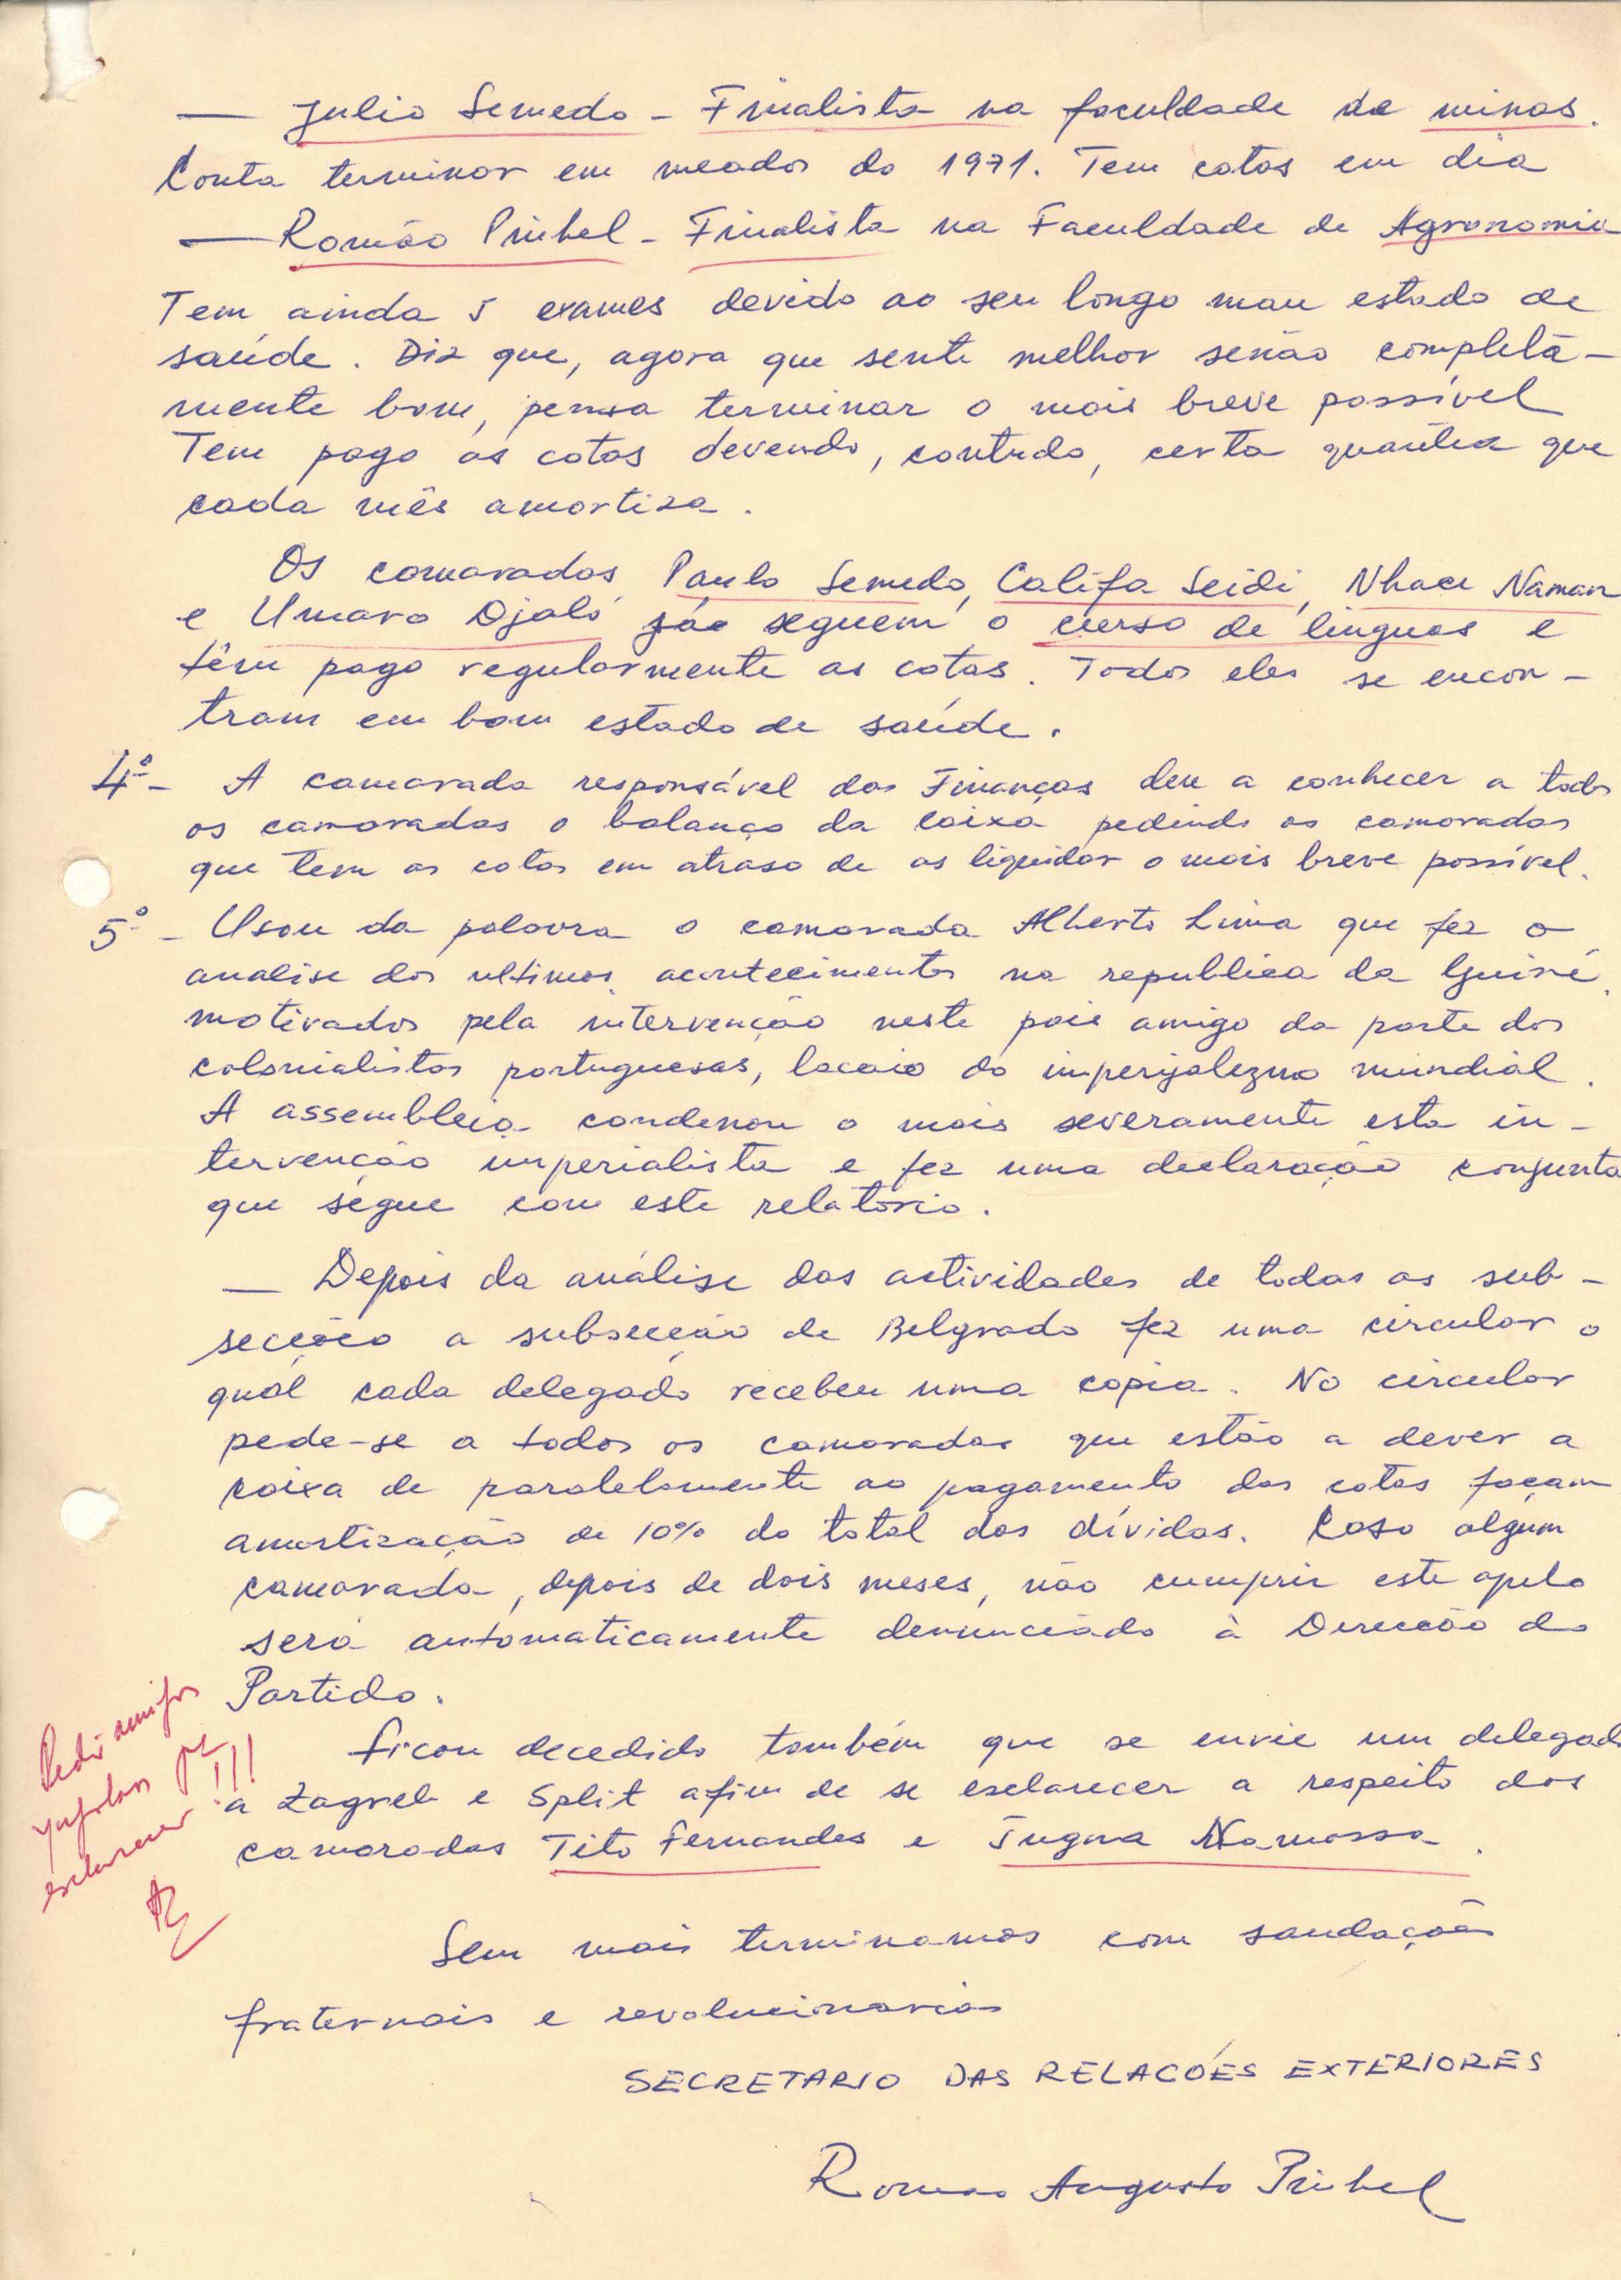 — Julio Semedo - Finalista na faculdade de minas.
Conta terminar em meados do 1971. Tem cotas em dia
— Romão Pinhel - Finalista na Faculdade de Agronomia
Tem ainda 5 exames devido ao seu longo mau estado de
saúde. Diz que, agora que sente melhor senão completa-
mente bom, pensa terminar o mais breve possível
Tem pago as cotas devendo, contudo, certa quantia que
cada mês amortiza.
Os camaradas Paulo Semedo, Califa Seidi, Nhace Naman
e Umaro Djaló já seguem o curso de linguas e
têm pago regularmente as cotas. Todos eles se encon-
tram em bom estado de saúde.
4º - A camarada responsável das Finanças deu a conhecer a todos
os camaradas o balanço da caixa pedindo os camaradas
que tem as cotas em atraso de as liquidar o mais breve possível.
5º - Usou da palavra o camarada Alberto Lima que fez a
analise dos ultimos acontecimentos na republica da Guiné,
motivados pela intervenção neste pais amigo da parte dos
colonialistas portuguesas, lacaio do imperijalezmo mundial.
A assembleia condenou o mais severamente esta in-
tervenção imperialista e fez uma declaração conjunta
que ségue com este relatório.
— Depois da análise das actividades de todas as sub-
secções a subsecção de Belgrado fez uma circular o
qual cada delegado recebeu uma copia. No circular
pede-se a todos os camaradas que estão a dever a
caixa de paralelamente ao pagamento das cotas façam
amortização de 10% do total das dívidas. Caso algum
camarada, depois de dois meses, não cumprir este apelo
será automaticamente denunciado à Direcção do
Partido.
ficou decedido também que se envie um delegado
a Zagreb e Split afim de se esclarecer a respeito dos
camaradas Tito Fernandes e Jugna Namassa.
Pedir amigos
que
esclarecer !!!
Sem mais terminamos com saudações
fraternais e revolucionarias
SECRETARIO DAS RELACÓES EXTERIORES
Romao Augusto Pinhel